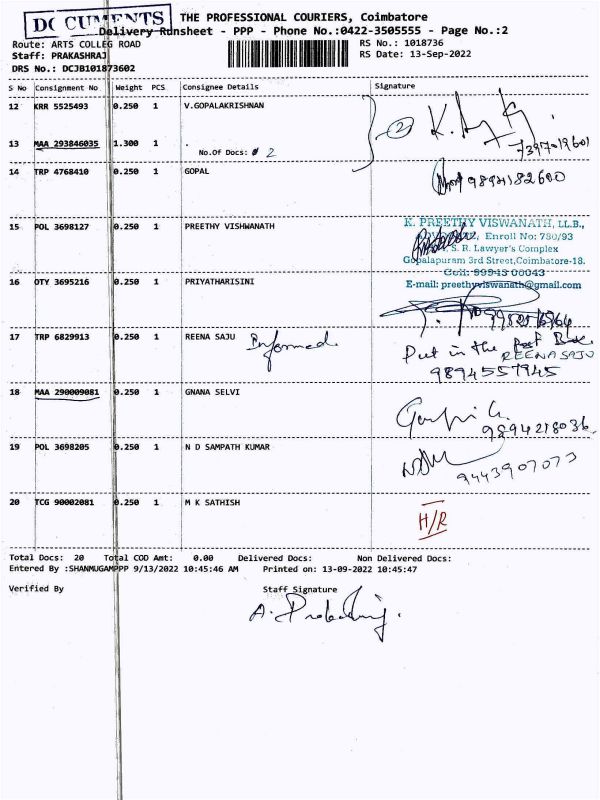 DOCUMENTS
THE PROFESSIONAL COURIERS, Coimbatore
Delivery Runsheet - PPP - Phone No.:0422-3505555 - Page No.:2
Route: ARTS COLLEG ROAD
RS No.: 1018736
Staff: PRAKASHRAJ
RS Date: 13-Sep-2022
DRS No.: DCJB101873602
S No Consignment No Weight PCS Consignee Details Signature
12 KRR 5525493 0.250 1 V.GOPALAKRISHNAN
2
13 MAA 293846035 1.300 1 .
No.Of Docs: 2
7397019601
14 TRP 4768410 0.250 1 GOPAL
9894182600
15 POL 3698127 0.250 1 PREETHY VISHWANATH
K. PREETHY VISWANATH, LL.B.,
Enroll No: 780/93
S. R. Lawyer's Complex
Gopalapuram 3rd Street,Coimbatore-18.
Cell: 99943 00043
E-mail: preethyviswanath@gmail.com
16 OTY 3695216 0.250 1 PRIYATHARISINI
17 TRP 6829913 0.250 1 REENA SAJU Informed
Put in the Post Box
REENA SAJU
9894557945
18 MAA 290009081 0.250 1 GNANA SELVI
9894218036
19 POL 3698205 0.250 1 N D SAMPATH KUMAR
9443907073
20 TCG 90002081 0.250 1 M K SATHISH
H/R
Total Docs: 20 Total COD Amt: 0.00 Delivered Docs: Non Delivered Docs:
Entered By :SHANMUGAMPPP 9/13/2022 10:45:46 AM Printed on: 13-09-2022 10:45:47
Verified By Staff Signature